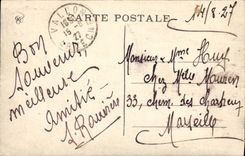 CARTE POSTALE
14/8/27
VALLON
15 -8
27
Bon
souvenir
meilleure
Amitié
Monsieur & Mme
chez Melle
33, chem. des Chartreux
Marseille